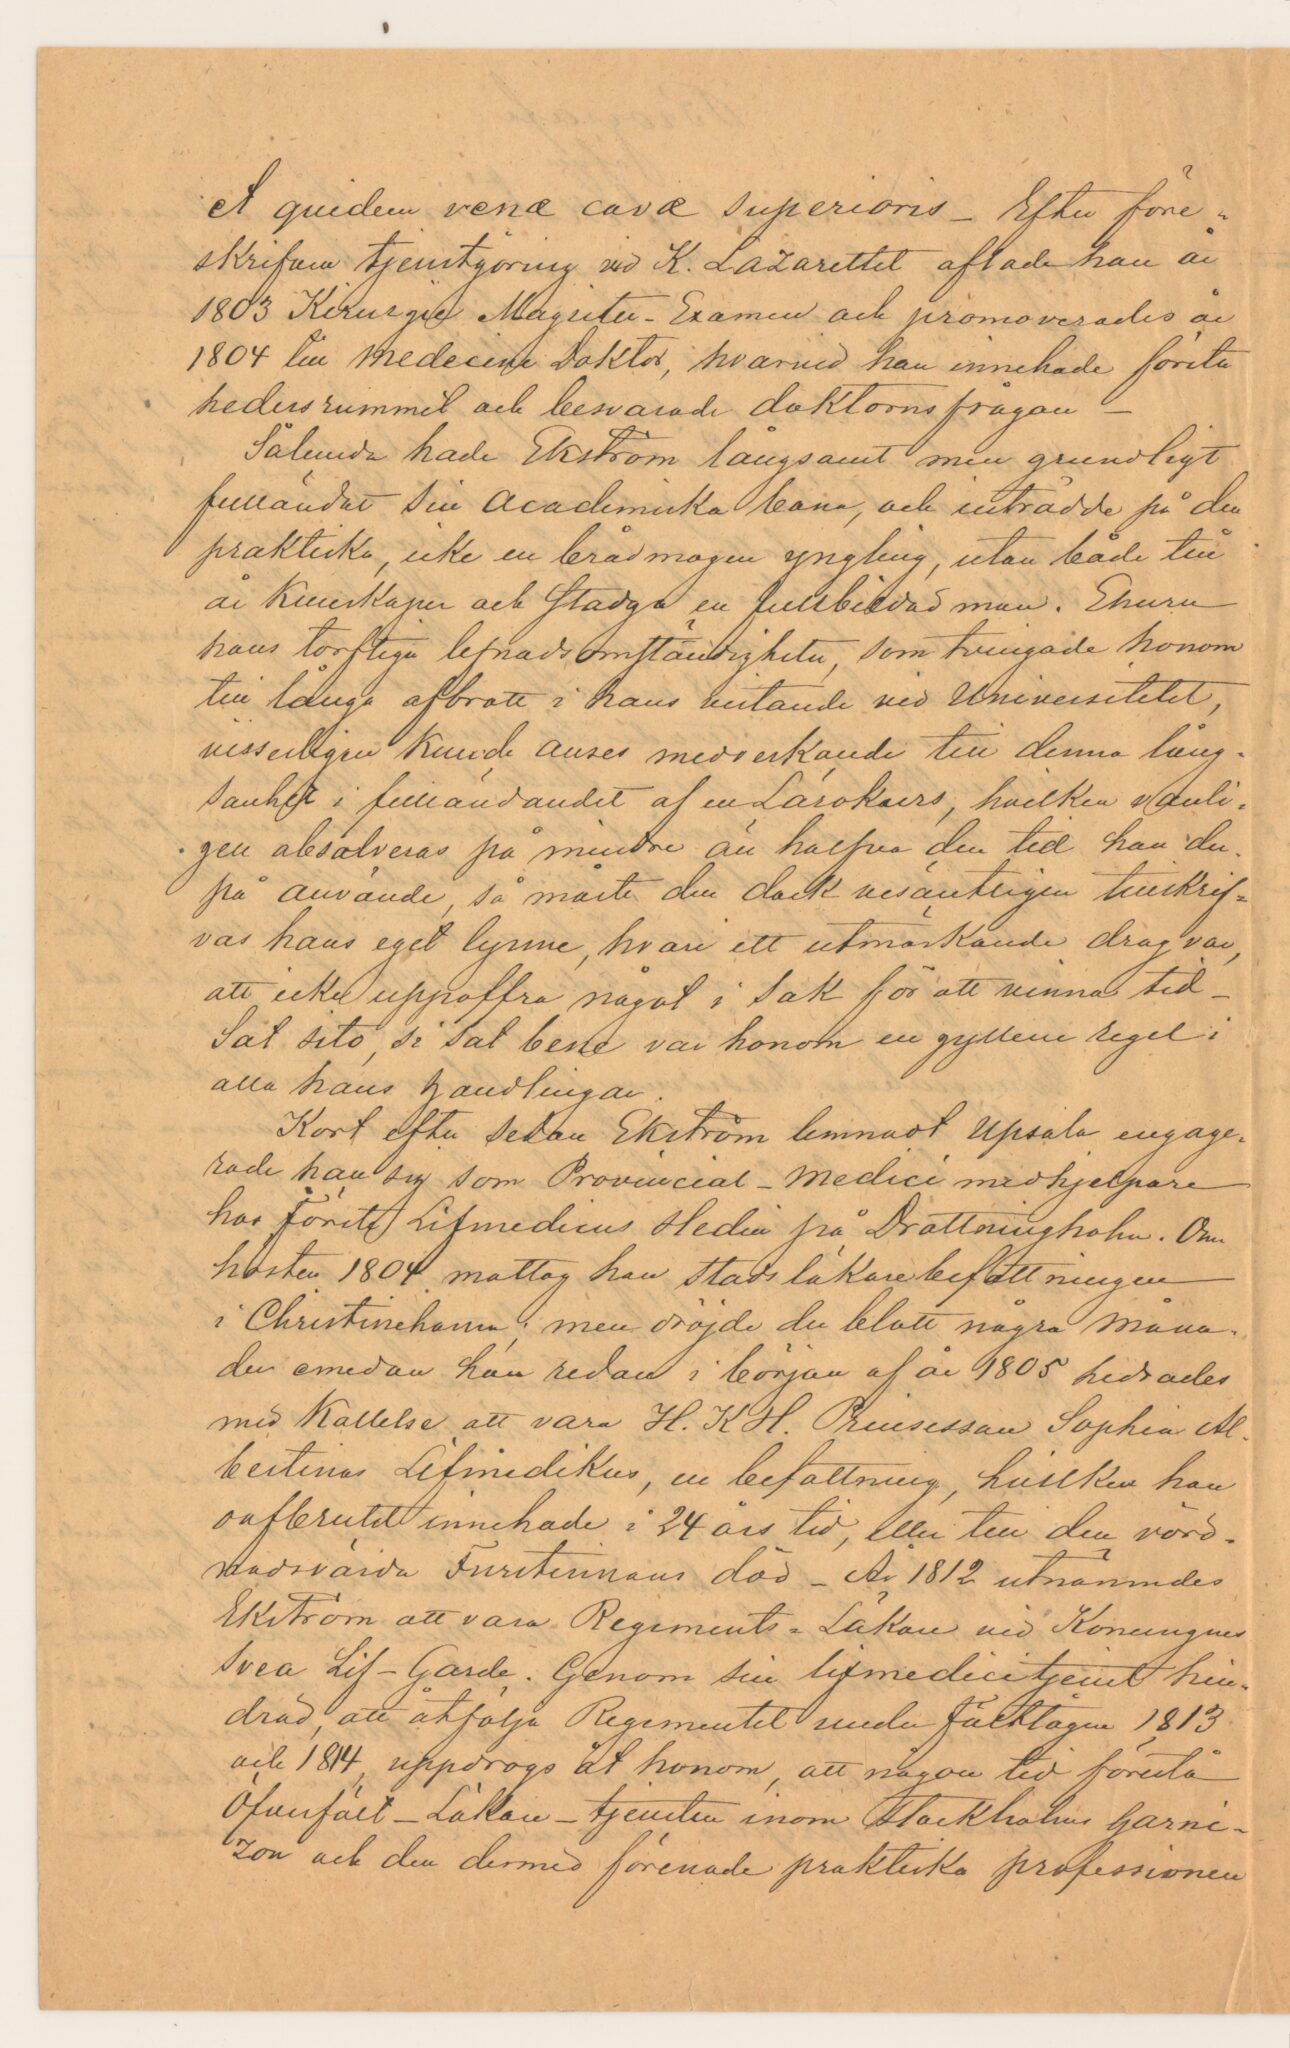 et quidem venæ cavæ superioris – Efter före-
skrifven tjenstgöring vid K. Lazarettet aflade han år
1803 Kirurgie Magister-Examen och promoverades år
1804 till Medecine Doktor, hvarvid han innehade första
hedersrummet och besvarade doktornsfrågan –
Sålunda hade Ekström långsamt men grundligt
fulländat sin Academiska bana, och inträdde på den
praktiska, icke en brådmogen yngling, utan både till
år Kunskaper och Stadga en fullbildad man. Ehuru
hans torftiga lefnadsomständigheter, som tvingade honom
till långa afbrott i hans vistande vid Universitetet,
visserligen kunde anses medverkande till denna lång-
samhet i fulländandet af en Lärokurs, hvilken vanli-
gen absolveras på mindre än halfva den tid han der-
på använde, så måste den dock väsäntligen tillskrif-
vas hans eget lynne, hvari ett utmärkande drag var,
att icke uppoffra något i Sak för att vinna tid –
Sat sito, si sat bene var honom en gyllene regel i
alla hans handlingar.
Kort efter sedan Ekström lemnadt Upsala engage-
rade han sig som Provincial-Medici medhjelpare
hos Förste Lifmedicus Hedin på Drottningholm. Om
hösten 1804 mottog han Stadsläkarebefattningen
i Christinehamn; men dröjde der blott några måna-
der emedan han redan i början af år 1805 hedrades
med Kallelse att vara H. K H. Prinsessan Sophia Al-
bertinas Lifmedikus, en befattning, hvilken han
oafbrutet innehade i 24 års tid, eller till den vörd-
nadsvärda Furstinnans död – År 1812 utnämndes
Ekström att vara Regiments-Läkare vid Konungens
Svea Lif-Garde. Genom sin lifmedicitjenst hin-
drad, att åtfölja Regimentet under Fälttågen 1813
och 1814, uppdrogs åt honom, att någon tid förestå
Öfverfält-Läkare-tjensten inom Stockholms Garni-
zon och den dermed förenade praktiska professionen